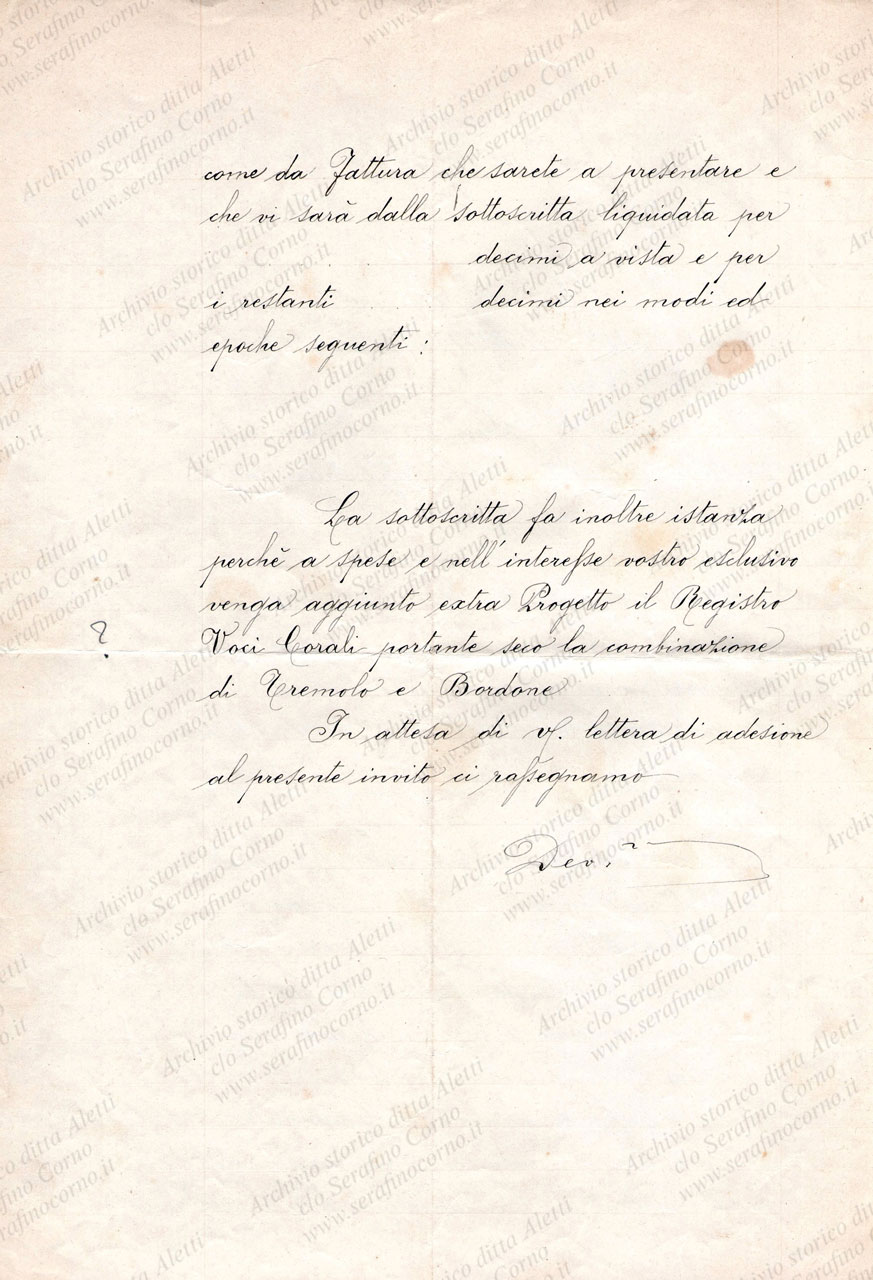 come da Fattura che sarete a presentare e
che vi sarà dalla sottoscritta liquidata per
decimi a vista e per
i restanti decimi nei modi ed
epoche seguenti :
La sottoscritta fa inoltre istanza
perchè a spese e nell' interesse vostro esclusivo
venga aggiunto extra Progetto il Registro
? Voci Corali portante seco la combinazione
di Tremolo e Bordone
In attesa di vs. lettera di adesione
al presente invito ci rassegnamo
Dev.
Archivio storico ditta Aletti
clo Serafino Corno
www.serafinocorno.it